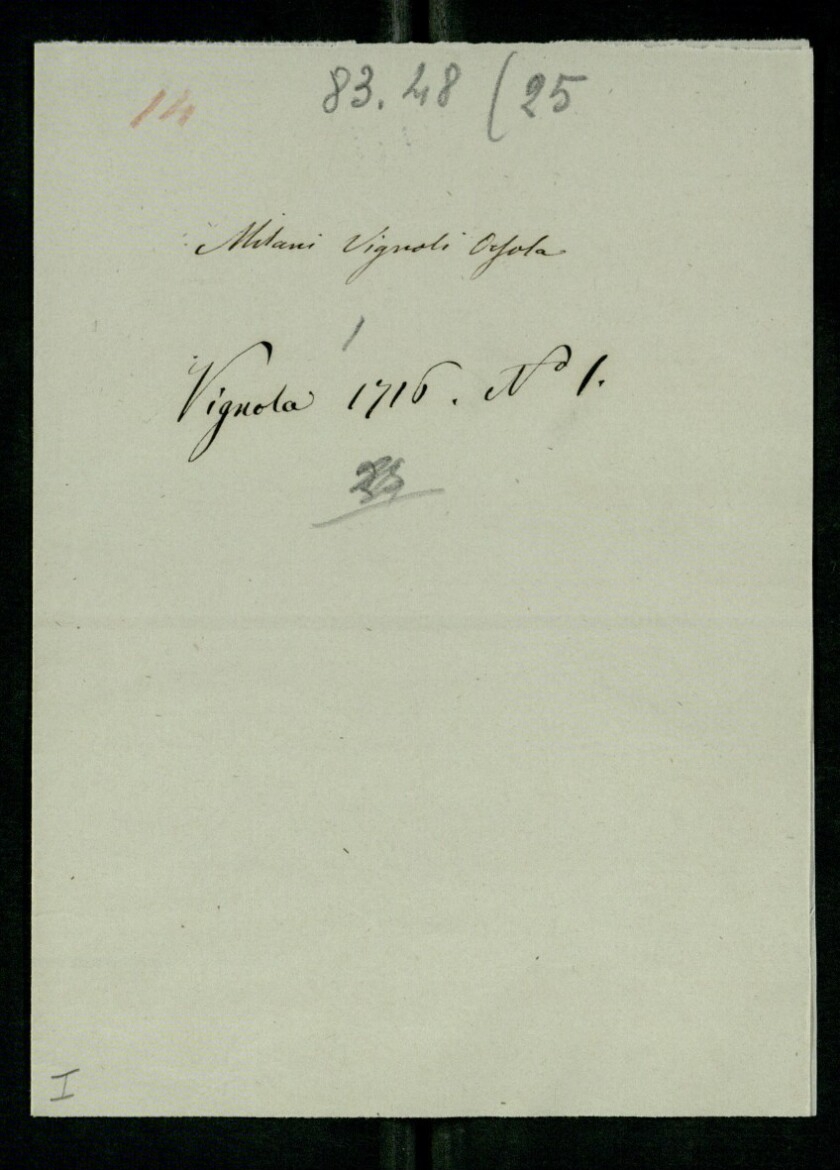 14 83.48 (25
Milani Vignoli Orsola
1
Vignola 1716. No 1.
I